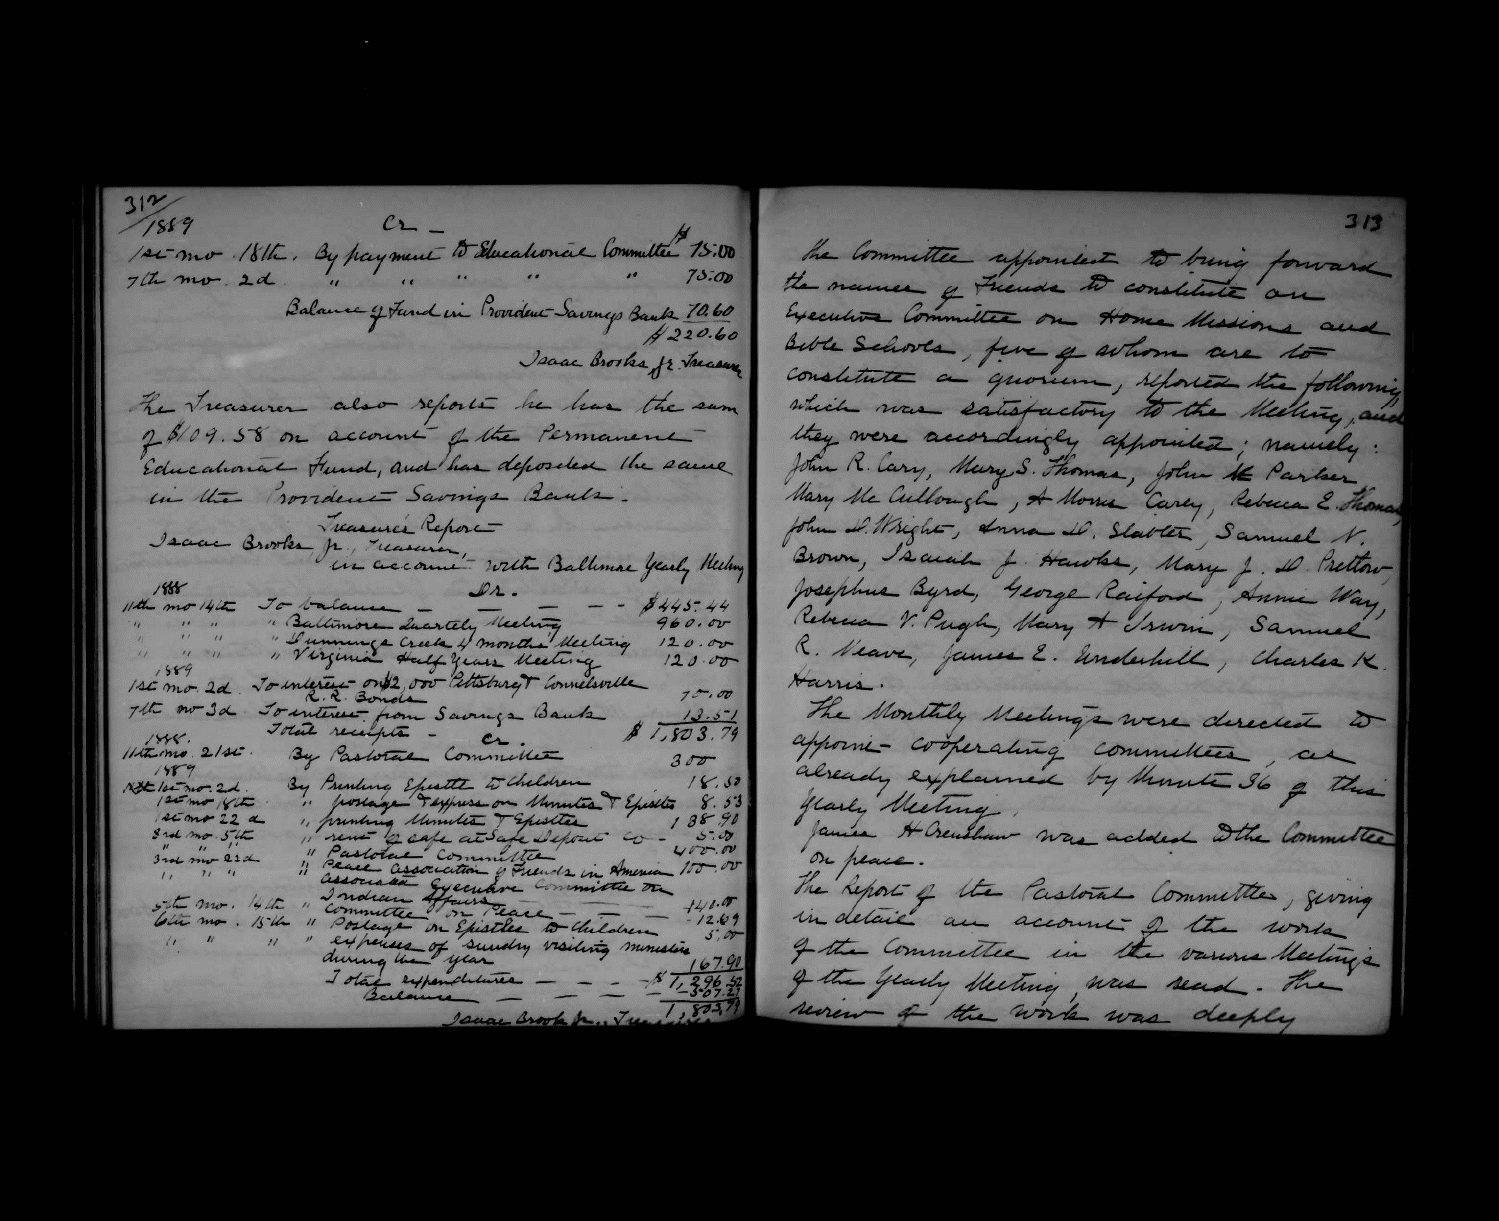 312
1889
Cr -
$
1st mo. 18th. By payment to Educational Committee 75.00
7th mo. 2d. " " " " " 75.00
Balance of Fund in Provident Savings Bank 70.60
$220.60
Isaac Brooks, Jr. Treasurer
The Treasurer also reports he has the sum
of $109.58 on account of the Permanent
Educational Fund, and has deposited the same
in the Provident Savings Bank.
Treasurer's Report
Isaac Brooks, Jr., Treasurer,
in account with Baltimore Yearly Meeting
1888 Dr.
11th mo 14th To balance - - - - - $445.44
" " " " Baltimore Quarterly Meeting 960.00
" " " " Dunnings Creek 4 months Meeting 120.00
" " " " Virginia Half Years Meeting 120.00
1889
1st mo. 2d. To interest on $2,000 Pittsburg & Connelsville
R. R. Bonds 70.00
7th mo 3d To interest from Savings Bank
Total receipts - $1,803.79
1888. Cr.
11th mo. 21st. By Pastoral Committee 300
1889
1st mo. 2d. By Printing Epistle to Children 18.50
1st mo 18th " postage & express on Minutes & Epistles 8.53
1st mo 22 d " printing Minutes & Epistles 138.90
3rd mo. 5th " rent of safe at Safe Deposit Co - 5.00
" " " " Pastoral Committee 400.00
3rd mo 23d " Peace Association of Friends in America 100.00
" " " " Associated Executive Committee on
Indian Affairs - - - 140.00
5th mo. 14th " Committee on Peace - - - 12.69
6th mo. 15th " Postage on Epistles to Children 5.00
" " " " expenses of sundry visiting ministers
during the year 167.90
Total expenditures - - - - $1,296.52
Balance - - - - 507.27
1,803.79
Isaac Brooks Jr.,
313
The Committee appointed to bring forward
the names of Friends to constitute an
Executive Committee on Home Missions and
Bible Schools, five of whom are to
constitute a quorum, reported the following,
which was satisfactory to the Meeting, and
they were accordingly appointed; namely:
John R. Cary, Mary S. Thomas, John K Parker
Mary McCullough, A Morris Carey, Rebecca E. Thomas,
John D. Wright, Anna D. Slabter, Samuel N.
Brown, Isaiah J. Hawks, Mary J. D. Prettow,
Josephus Byrd, George Raiford, Annie Way,
Rebecca V. Pugh, Mary A Irwin, Samuel
R. Neave, James E. Underhill, Charles K.
Harris.
The Monthly Meetings were directed to
appoint cooperating committees, as
already explained by Minute 36 of this
Yearly Meeting.
James H Crenshaw was added to the Committee
on peace.
The Report of the Pastoral Committee, giving
in detail an account of the work
of the Committee in the various Meetings
of the Yearly Meeting, was read. The
review of the work was deeply